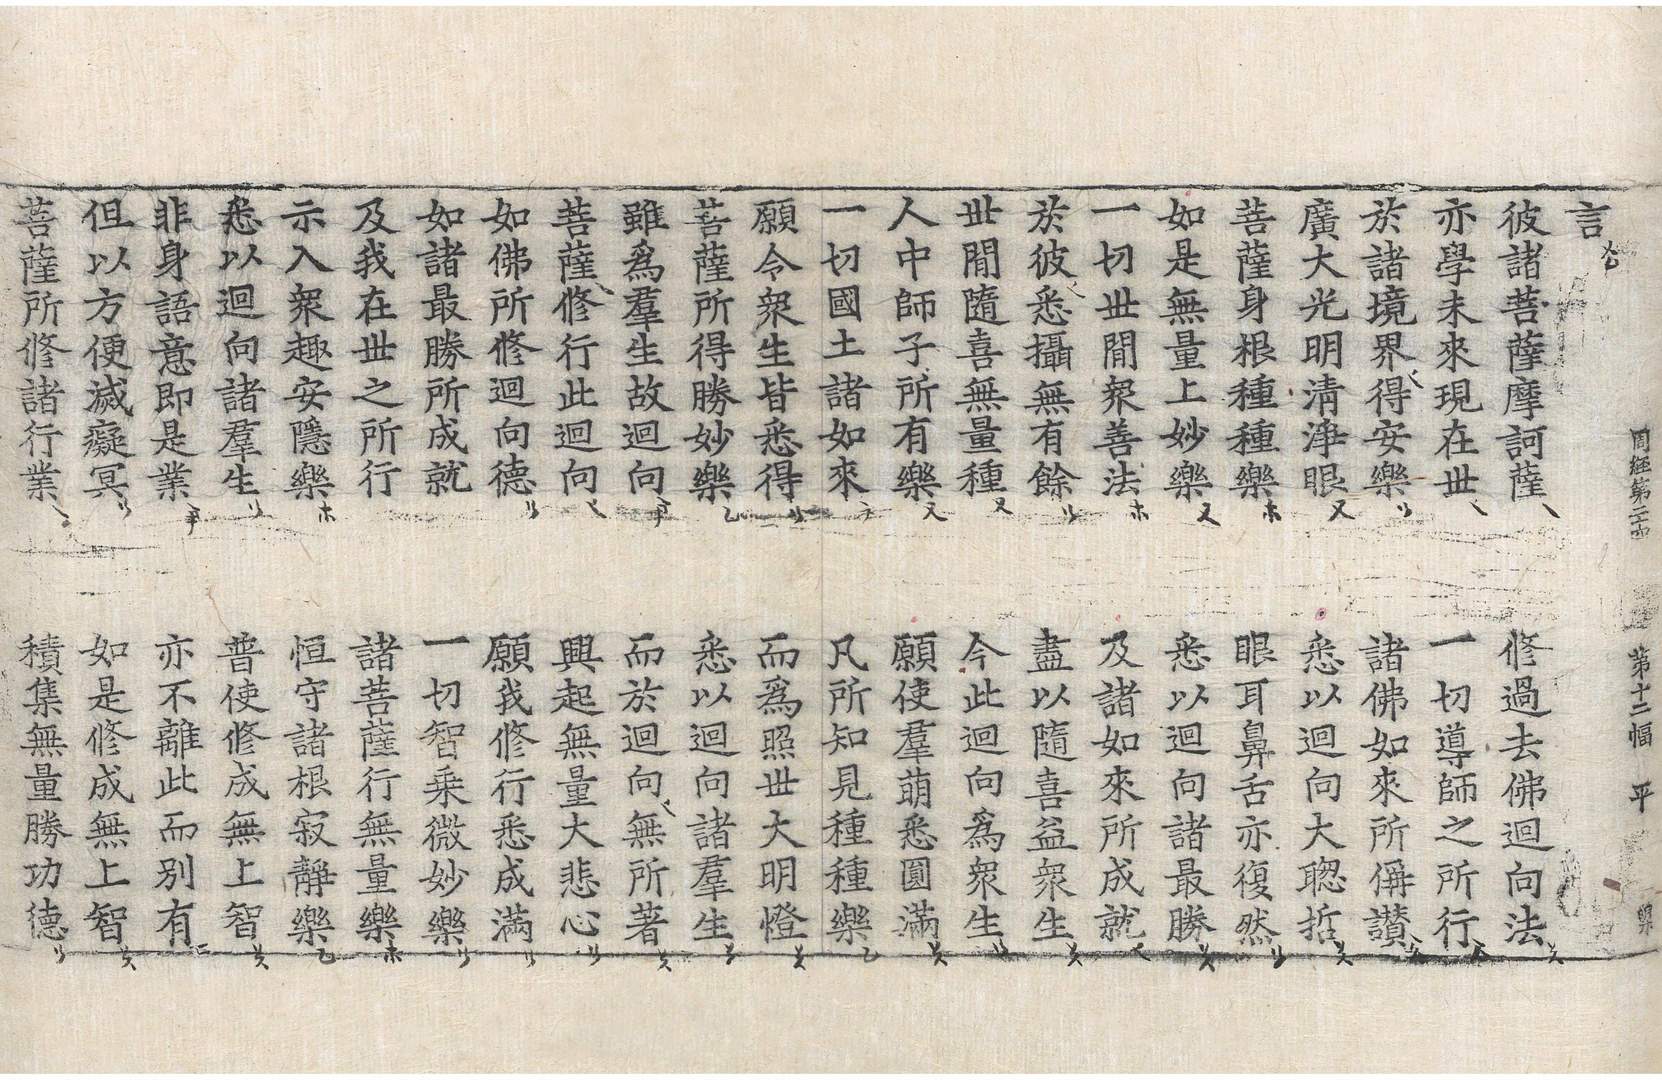 周經第二十四 第十二幅 平
言
彼諸菩薩摩訶薩 修過去佛迴向法
亦學未來現在世 一切導師之所行
於諸境界得安樂 諸佛如來所偁讚
廣大光明清淨眼 悉以迴向大聰哲
菩薩身根種種樂 眼耳鼻舌亦復然
如是無量上妙樂 悉以迴向諸最勝
一切世間衆善法 及諸如來所成就
於彼悉攝無有餘 盡以隨喜益衆生
世間隨喜無量種 今此迴向爲衆生
人中師子所有樂 願使羣萌悉圓滿
一切國土諸如來 凡所知見種種樂
願令衆生皆悉得 而爲照世大明燈
菩薩所得勝妙樂 悉以迴向諸羣生
雖爲羣生故迴向 而於迴向無所著
菩薩修行此迴向 興起無量大悲心
如佛所修迴向德 願我修行悉成滿
如諸最勝所成就 一切智乘微妙樂
及我在世之所行 諸菩薩行無量樂
示入衆趣安隱樂 恒守諸根寂靜樂
悉以迴向諸羣生 普使修成無上智
非身語意即是業 亦不離此而別有
但以方便滅癡冥 如是修成無上智
菩薩所修諸行業 積集無量勝功德